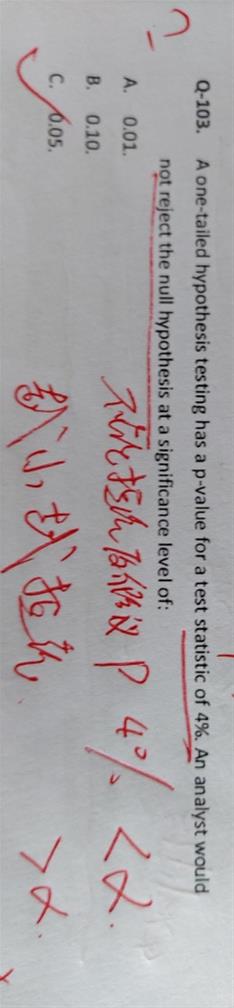 Q-103. A one-tailed hypothesis testing has a p-value for a test statistic of 4%. An analyst would
not reject the null hypothesis at a significance level of:
A. 0.01.
B. 0.10.
C. 0.05.
不能拒绝原假设 P 4% < α.
越小, 越拒绝. > α.